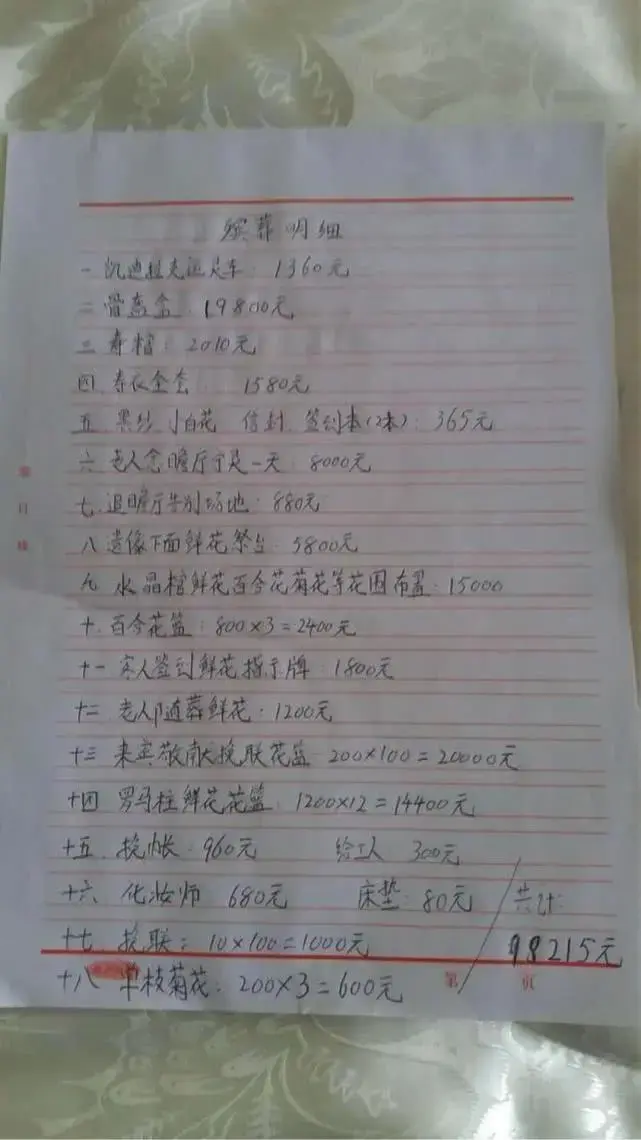 殡葬明细
一 凯迪拉克运灵车: 1360元
二 骨灰盒: 19800元
三 寿棺: 2010元
四. 寿衣全套 1580元
五 黑纱 小白花 信封. 签到本(2本): 365元
六 老人念瞻厅守灵一天: 8000元
七. 追瞻厅告别场地: 880元
八 遗像下面鲜花祭台: 5800元
九 水晶棺鲜花百合花菊花等花围布置: 15000
十. 百合花篮: 800×3=2400元
十一 来人签到鲜花指示牌: 1800元
十二 老人随葬鲜花. 1200元
十三 来宾敬献挽联花篮 200×100=20000元
十四 罗马柱鲜花花篮. 1200×12=14400元
十五. 挽帐. 960元 给工人 300元
十六. 化妆师 680元 床垫: 80元 共计:
十七. 挽联: 10×100=1000元 98215元
十八 单枝菊花: 200×3=600元 第 页